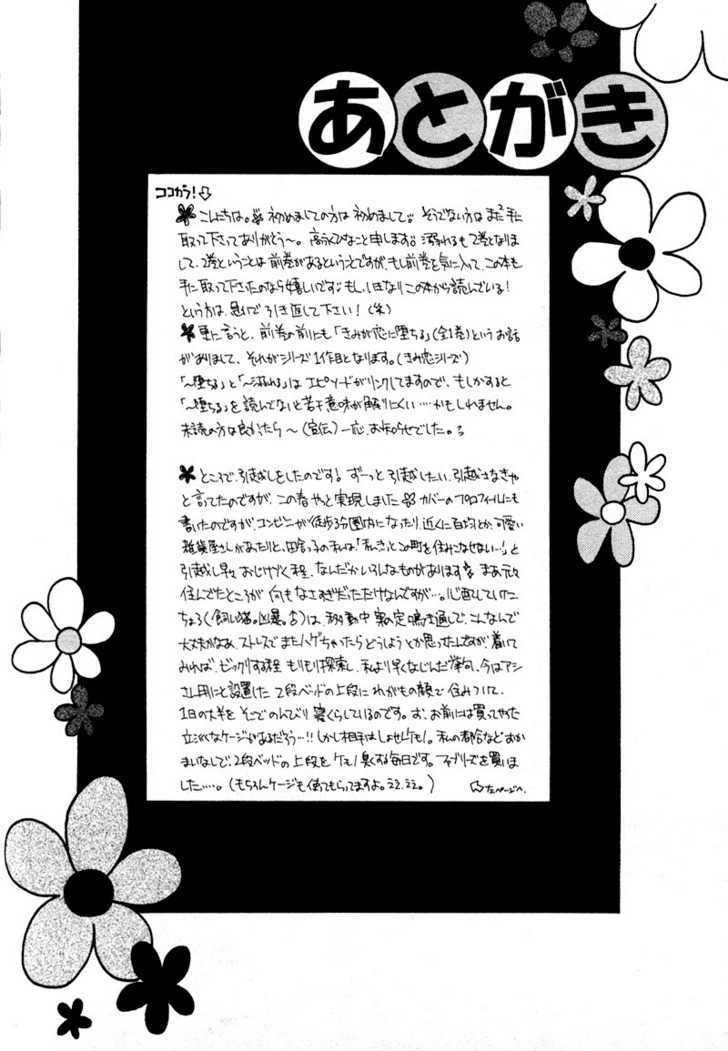 あとがき
ココから!
こんにちは。初めましての方は初めまして。そうでない方はまたまた手に
取って下さってありがとう〜。高永ひなこと申します。溺れるも2巻となりま
して、2巻ということは前巻があるということですが、もし前巻を気に入って、この本も
手に取って下さったのなら嬉しいです。もし、いきなりこの本から読んでいる!
という方は、急いで引き返して下さい!(笑)
更に言うと、前巻の前にも「きみが恋に堕ちる」(全1巻)というお話
がありまして、それがシリーズ1作目となります。(きみ恋シリーズ)
「〜堕ちる」と「〜溺れる」はエピソードがリンクしてますので、もしかすると
「〜堕ちる」を読んでないと若干意味が解りにくい‥‥かもしれません。
未読の方は良かったら〜(宣伝)一応、お知らせでした。
ところで、引越しをしたのです!ずーっと引越したい、引越さなきゃ
と言ってたのですが、この春やっと実現しました カバーのプロフィールにも
書いたのですが、コンビニが徒歩3分圏内になったり近くに百均とか、可愛い
雑貨屋さんがあったりと、田舎っ子の私は、「私、きっとこの町を住みこなせない…!」と
引越し早々おじけづく程、なんだかいろんなものがあります まあ元々
住んでたところが何もなさすぎだっただけなんですが…。心配していた
ちょろ(飼い猫。凶暴。♂)は、移動中案の定鳴き通しで、こんなんで
大丈夫かなあ、ストレスでまたハゲちゃったらどうしようとか思ったんですが、着いて
みれば、ビックリする程もりもり探索し、私より早くなじんだ挙句、今はアシ
さん用にと設置した2段ベッドの上段にわがもの顔で住みついて、
1日の大半をそこでのんびり寝くらしているのです。お、お前には買ってやった
立派なケージがあるだろう…!!しかし相手はしょせんケモノ。私の都合などおかま
いなしで、2段ベッドの上段をケモノ臭くする毎日です。ファブリーズを買いま
した‥‥。(もちろんケージも使ってもらってますよ。ススス。)
左ページへ。